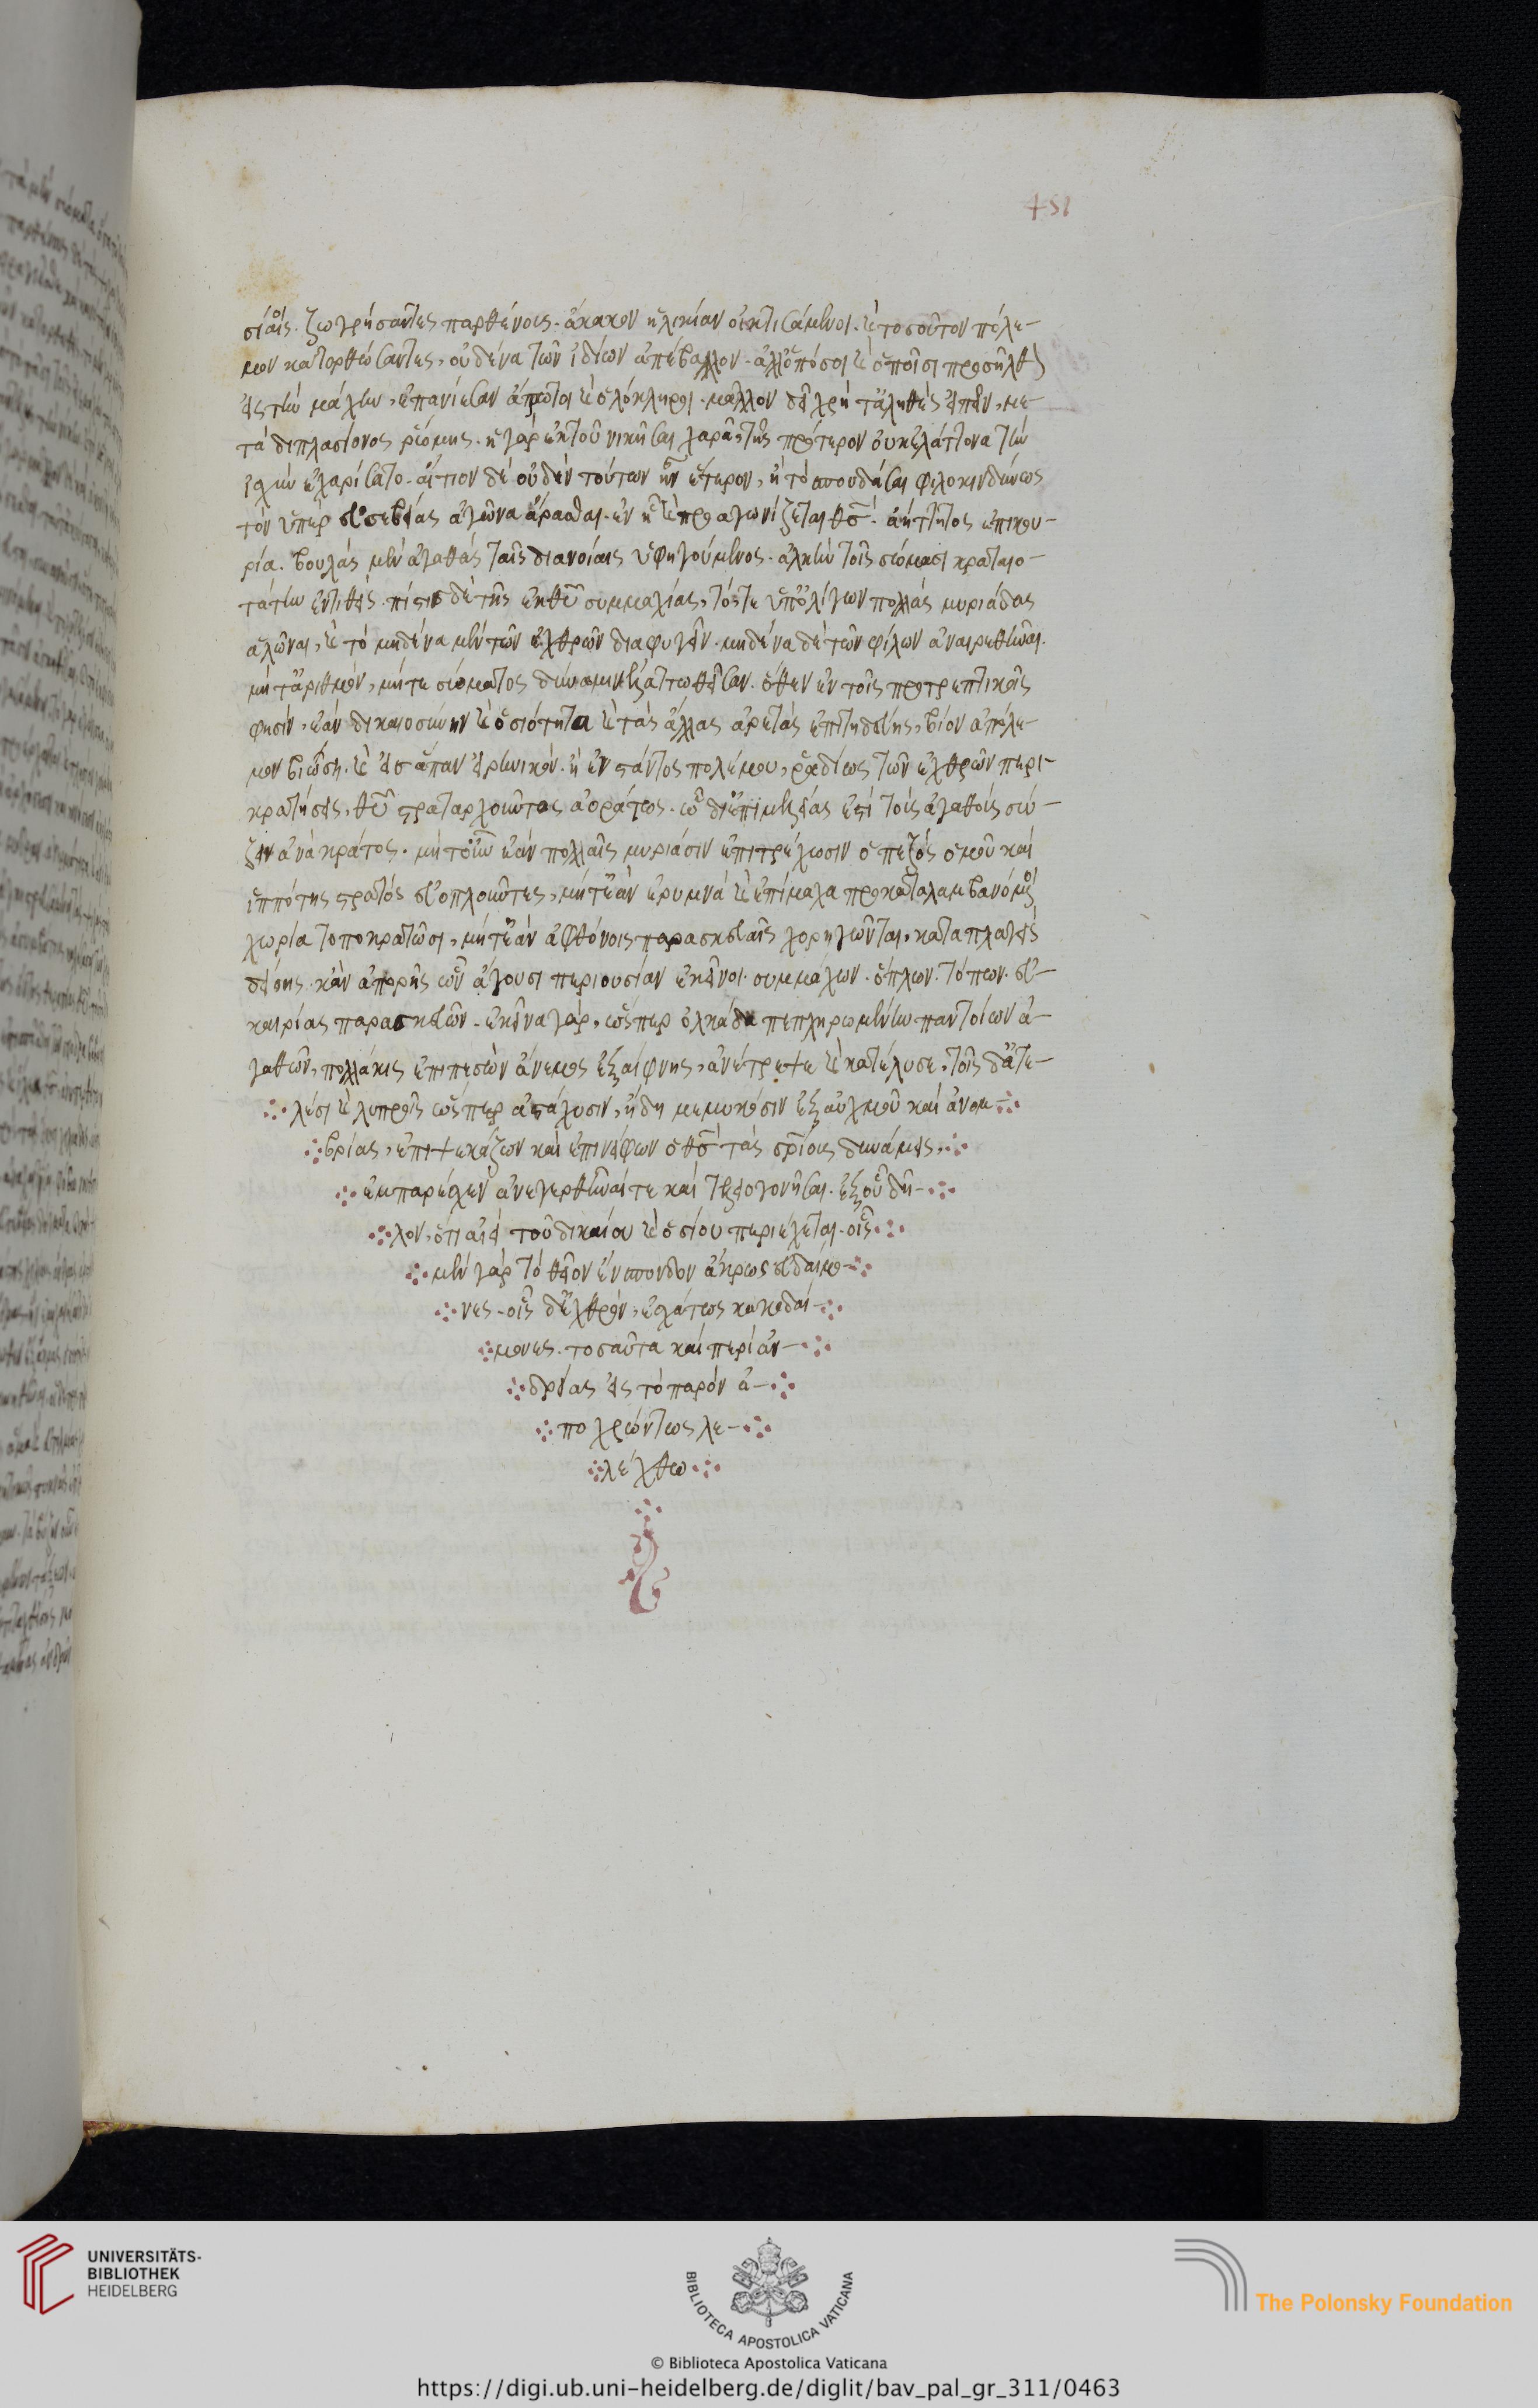 451
σίαις. ζωγρήσαντες παρθένοις. ἄκακον ἡλικίαν οἰκτισάμενοι. καὶ τοσοῦτον πόλε-
μον κατορθώσαντες, οὐδένα τῶν ἰδίων ἀπέβαλλον. ἀλλ' ὁπόσοι καὶ ὁποῖοι προσῆλθον
εἰς τὴν μάχην, ἐπανίεσαν ἄτρωτοι καὶ ὁλόκληροι. μᾶλλον δ' εἰ χρὴ τἀληθὲς εἰπεῖν, με-
τὰ διπλασίονος ῥώμης. ἡ γὰρ ἐκ τοῦ νικῆσαι χαρὰ, τῆς πρότερον οὐκ ἐλάττονα τὴν
ἰσχὺν ἐχαρίσατο. αἴτιον δὲ οὐδὲν τούτων ἦν ἕτερον, ἢ τὸ σπουδάσαι φιλοκινδύνως
τὸν ὑπὲρ εὐσεβείας ἀγῶνα ἄρασθαι. ἐν ᾗ καὶ προαγωνίζεται θσ. ἀήττητος ἐπικου-
ρία. βουλὰς μὲν ἀγαθὰς ταῖς διανοίαις ὑφηγούμενος. ἀλκὴν τοῖς σώμασι κραταιο-
τάτην ἐντιθείς. πίστις δὲ τῆς ἐκ θυ συμμαχίας, τό, τε ὑπ' ὀλίγων πολλὰς μυριάδας
ἁλῶναι, καὶ τὸ μηδένα μὲν τῶν ἐχθρῶν διαφυγεῖν. μηδένα δὲ τῶν φίλων ἀναιρεθῆναι.
μήτ' ἀριθμὸν, μήτε σώματος δύναμιν ἐλαττωθεῖσαν. ὅθεν ἐν τοῖς προτρεπτικοῖς
φησὶν, ἐὰν δικαιοσύνην καὶ ὁσιότητα καὶ τὰς ἄλλας ἀρετὰς ἐπιτηδεύης, βίον ἀπόλε-
μον βιώση. καὶ εἰσάπαν εἰρηνικόν. ἢ ἐνστάντος πολέμου, ῥαδίως τῶν ἐχθρῶν περι-
κρατήσεις, θυ στραταρχοῦντος ἀοράτως. ὧ δι' ἐπιμελείας ἐστὶ τοὺς ἀγαθοὺς σώ-
ζειν ἀνὰ κράτος. μήτ' οὖν ἐὰν πολλαῖς μυριάσιν ἐπιτρέχωσιν ὁ πεζὸς ὁμοῦ καὶ
ἱππότης στρατὸς εὐοπλοῦντες, μήτ' ἐὰν ἐρυμνὰ καὶ ἐπίμαχα προκαταλαμβανόμενοι
χωρία τοποκρατῶσι, μήτ' ἐὰν ἀφθόνοις παρασκευαῖς χορηγῶνται, καταπλαγεὶς
δείσης. κἂν ἀπορῆς ὧν ἄγουσι περιουσίαν ἐκεῖνοι. συμμάχων. ὅπλων. τόπων. εὐ-
καιρίας παρασκευῶν. ἐκεῖνα γὰρ, ὥσπερ ὁλκάδα πεπληρωμένην παντοίων ἀ-
γαθῶν, πολλάκις ἐπιπεσὼν ἄνεμος ἐξαίφνης, ἀνέτρεψε καὶ κατέλυσε, τοῖς δ' εὐτε-
λέσι καὶ λυπροῖς ὥσπερ ἀστάχυσιν, ἤδη μεμυκόσιν ἐξ αὐχμοῦ καὶ ἀνομ-
βρίας, ἐπιψεκάζων καὶ ἐπινείφων ὁ θσ τὰς σρίους δυνάμεις,
ἐμπαρέσχεν ἀνεγερθῆναί τε καὶ τελειογονῆσαι. ἐξ οὗ δῆ-
λον, ὅτι ἀεὶ τοῦ δικαίου καὶ ὁσίου περιέχεται. οἷς
μὲν γὰρ τὸ θεῖον ἔνσπονδον ἄκρως εὐδαίμο-
νες. οἷς δ' ἐχθρὸν, ἐσχάτως κακοδαί-
μονες. τοσαῦτα καὶ περὶ ἀν-
δρείας εἰς τὸ παρὸν ἀ-
ποχρώντως λε-
λέχθω
UNIVERSITÄTS-
BIBLIOTHEK
HEIDELBERG
BIBLIOTECA APOSTOLICA VATICANA
© Biblioteca Apostolica Vaticana
The Polonsky Foundation
https://digi.ub.uni-heidelberg.de/diglit/bav_pal_gr_311/0463